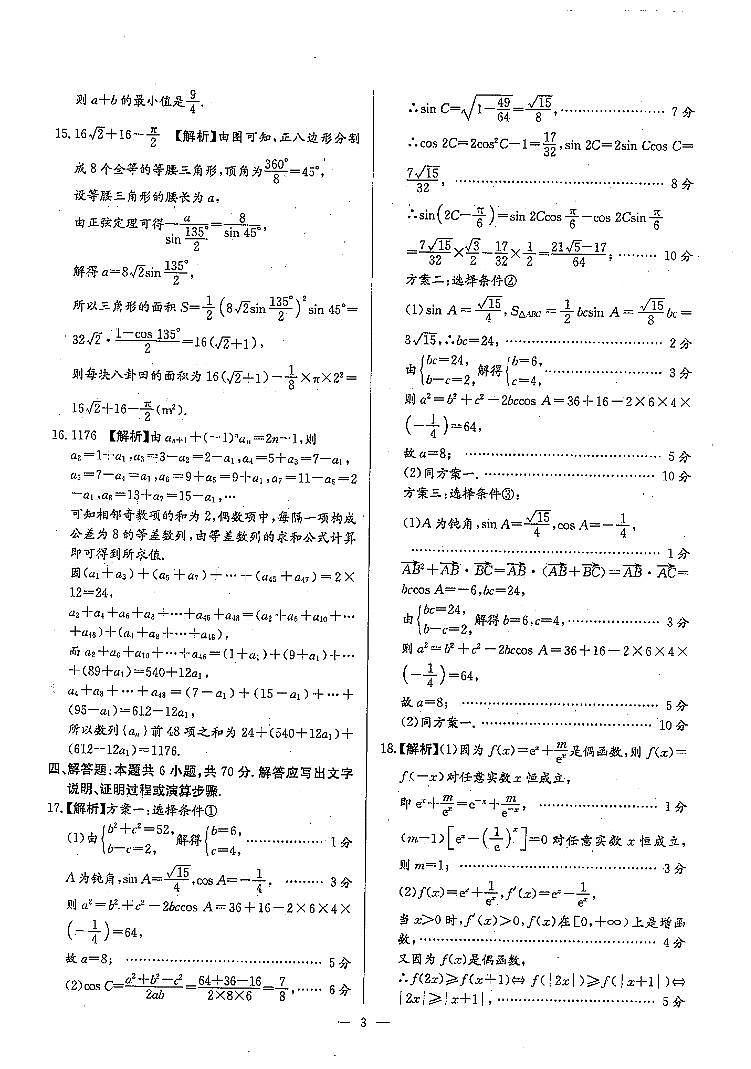 则 a+b 的最小值是 9/4.
15. 16√2+16-π/2 【解析】由图可知,正八边形分割
成 8 个全等的等腰三角形,顶角为 360°/8=45°,
设等腰三角形的腰长为 a,
由正弦定理可得 a/(sin 135°/2)=8/(sin 45°),
解得 a=8√2sin 135°/2,
所以三角形的面积 S=1/2(8√2sin 135°/2)²sin 45°=
32√2·(1-cos 135°)/2=16(√2+1),
则每块八卦田的面积为 16(√2+1)-1/8×π×2²=
16√2+16-π/2(m²).
16. 1176 【解析】由 aₙ₊₁+(-1)ⁿaₙ=2n-1,则
a₂=1+a₁,a₃=3-a₂=2-a₁,a₄=5+a₃=7-a₁,
a₅=7-a₄=a₁,a₆=9+a₅=9+a₁,a₇=11-a₆=2
-a₁,a₈=13+a₇=15-a₁,…
可知相邻奇数项的和为 2,偶数项中,每隔一项构成
公差为 8 的等差数列,由等差数列的求和公式计算
即可得到所求值.
因(a₁+a₃)+(a₅+a₇)+…+(a₄₅+a₄₇)=2×
12=24,
a₂+a₄+a₆+a₈+…+a₄₆+a₄₈=(a₂+a₆+a₁₀+…
+a₄₆)+(a₄+a₈+…+a₄₈),
而 a₂+a₆+a₁₀+…+a₄₆=(1+a₁)+(9+a₁)+…
+(89+a₁)=540+12a₁,
a₄+a₈+…+a₄₈=(7-a₁)+(15-a₁)+…+
(95-a₁)=612-12a₁,
所以数列{aₙ}前 48 项之和为 24+(540+12a₁)+
(612-12a₁)=1176.
四、解答题:本题共 6 小题,共 70 分.解答应写出文字
说明、证明过程或演算步骤.
17.【解析】方案一:选择条件①
(1)由{b²+c²=52, b-c=2, 解得{b=6, c=4, ……………… 1 分
A 为钝角,sin A=√15/4,cos A=-1/4, ……… 3 分
则 a²=b²+c²-2bccos A=36+16-2×6×4×
(-1/4)=64,
故 a=8; ……………………………… 5 分
(2)cos C=(a²+b²-c²)/2ab=(64+36-16)/(2×8×6)=7/8,…… 6 分
∴sin C=√(1-49/64)=√15/8,………………… 7 分
∴cos 2C=2cos²C-1=17/32,sin 2C=2sin Ccos C=
7√15/32, ……………………………………… 8 分
∴sin(2C-π/6)=sin 2Ccos π/6-cos 2Csin π/6
=7√15/32×√3/2-17/32×1/2=(21√5-17)/64; ……… 10 分
方案二:选择条件②
(1)sin A=√15/4,S△ABC=1/2bcsin A=√15/8bc=
3√15,∴bc=24, …………………………… 2 分
由{bc=24, b-c=2, 解得{b=6, c=4, …………………… 3 分
则 a²=b²+c²-2bccos A=36+16-2×6×4×
(-1/4)=64,
故 a=8; ……………………………… 5 分
(2)同方案一. ……………………………… 10 分
方案三:选择条件③:
(1)A 为钝角,sin A=√15/4,cos A=-1/4,
……………………………………………… 1 分
AB²+AB·BC=AB·(AB+BC)=AB·AC=
bccos A=-6,bc=24,
由{bc=24, b-c=2, 解得 b=6,c=4,……………… 3 分
则 a²=b²+c²-2bccos A=36+16-2×6×4×
(-1/4)=64,
故 a=8; ……………………………… 5 分
(2)同方案一. ……………………………… 10 分
18.【解析】(1)因为 f(x)=eˣ+m/eˣ是偶函数,则 f(x)=
f(-x)对任意实数 x 恒成立,
即 eˣ+m/eˣ=e⁻ˣ+m/e⁻ˣ, …………………… 1 分
(m-1)[eˣ-(1/e)ˣ]=0 对任意实数 x 恒成立,
则 m=1; ……………………………… 3 分
(2)f(x)=eˣ+1/eˣ,f′(x)=eˣ-1/eˣ,
当 x>0 时,f′(x)>0,f(x)在[0,+∞)上是增函
数,………………………………………… 4 分
又因为 f(x)是偶函数,
∴f(2x)≥f(x+1)⇔f(|2x|)≥f(|x+1|)⇔
|2x|≥|x+1|, …………………………… 5 分
— 3 —